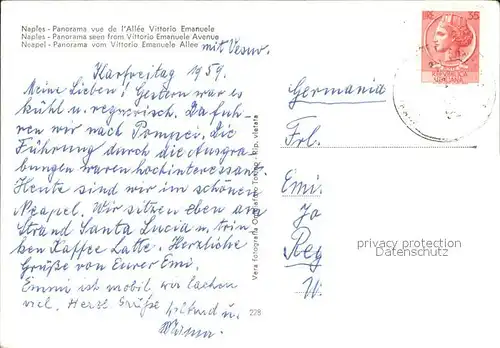 Naples - Panorama vue de l'Allée Vittorio Emanuele
Naples - Panorama seen from Vittorio Emanuele Avenue
Neapel - Panorama vom Vittorio Emanuele Allee mit Vesuv.
Karfreitag 1959.
Meine Lieben! Gestern war es
kühl u. regnerisch. Da fuh-
ren wir nach Pompei. Die
Führung durch die Ausgra-
bungen waren hochinteressant.
Heute sind wir im schönen
Neapel. Wir sitzen eben am
Strand Santa Lucia u. trin-
ken Kaffee Latte. Herzliche
Grüße von Eurer Emi.
Emmi ist mobil wir lachen
viel. Herzl Grüße u.
228
Vera fotografia Rip. vietata
LIRE 35
REPVBBLICA
ITALIANA
Germania
Frl.
Emi.
Jo
Reg
W.
privacy protection
Datenschutz